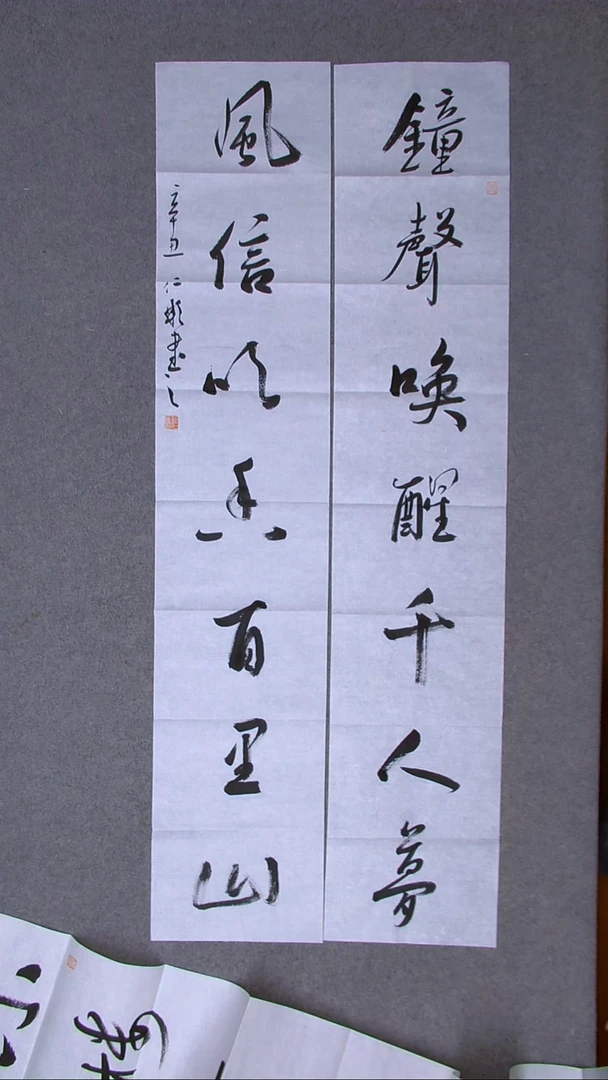 鐘聲喚醒千人夢
風信吹香百里山
辛丑 仁彬書之